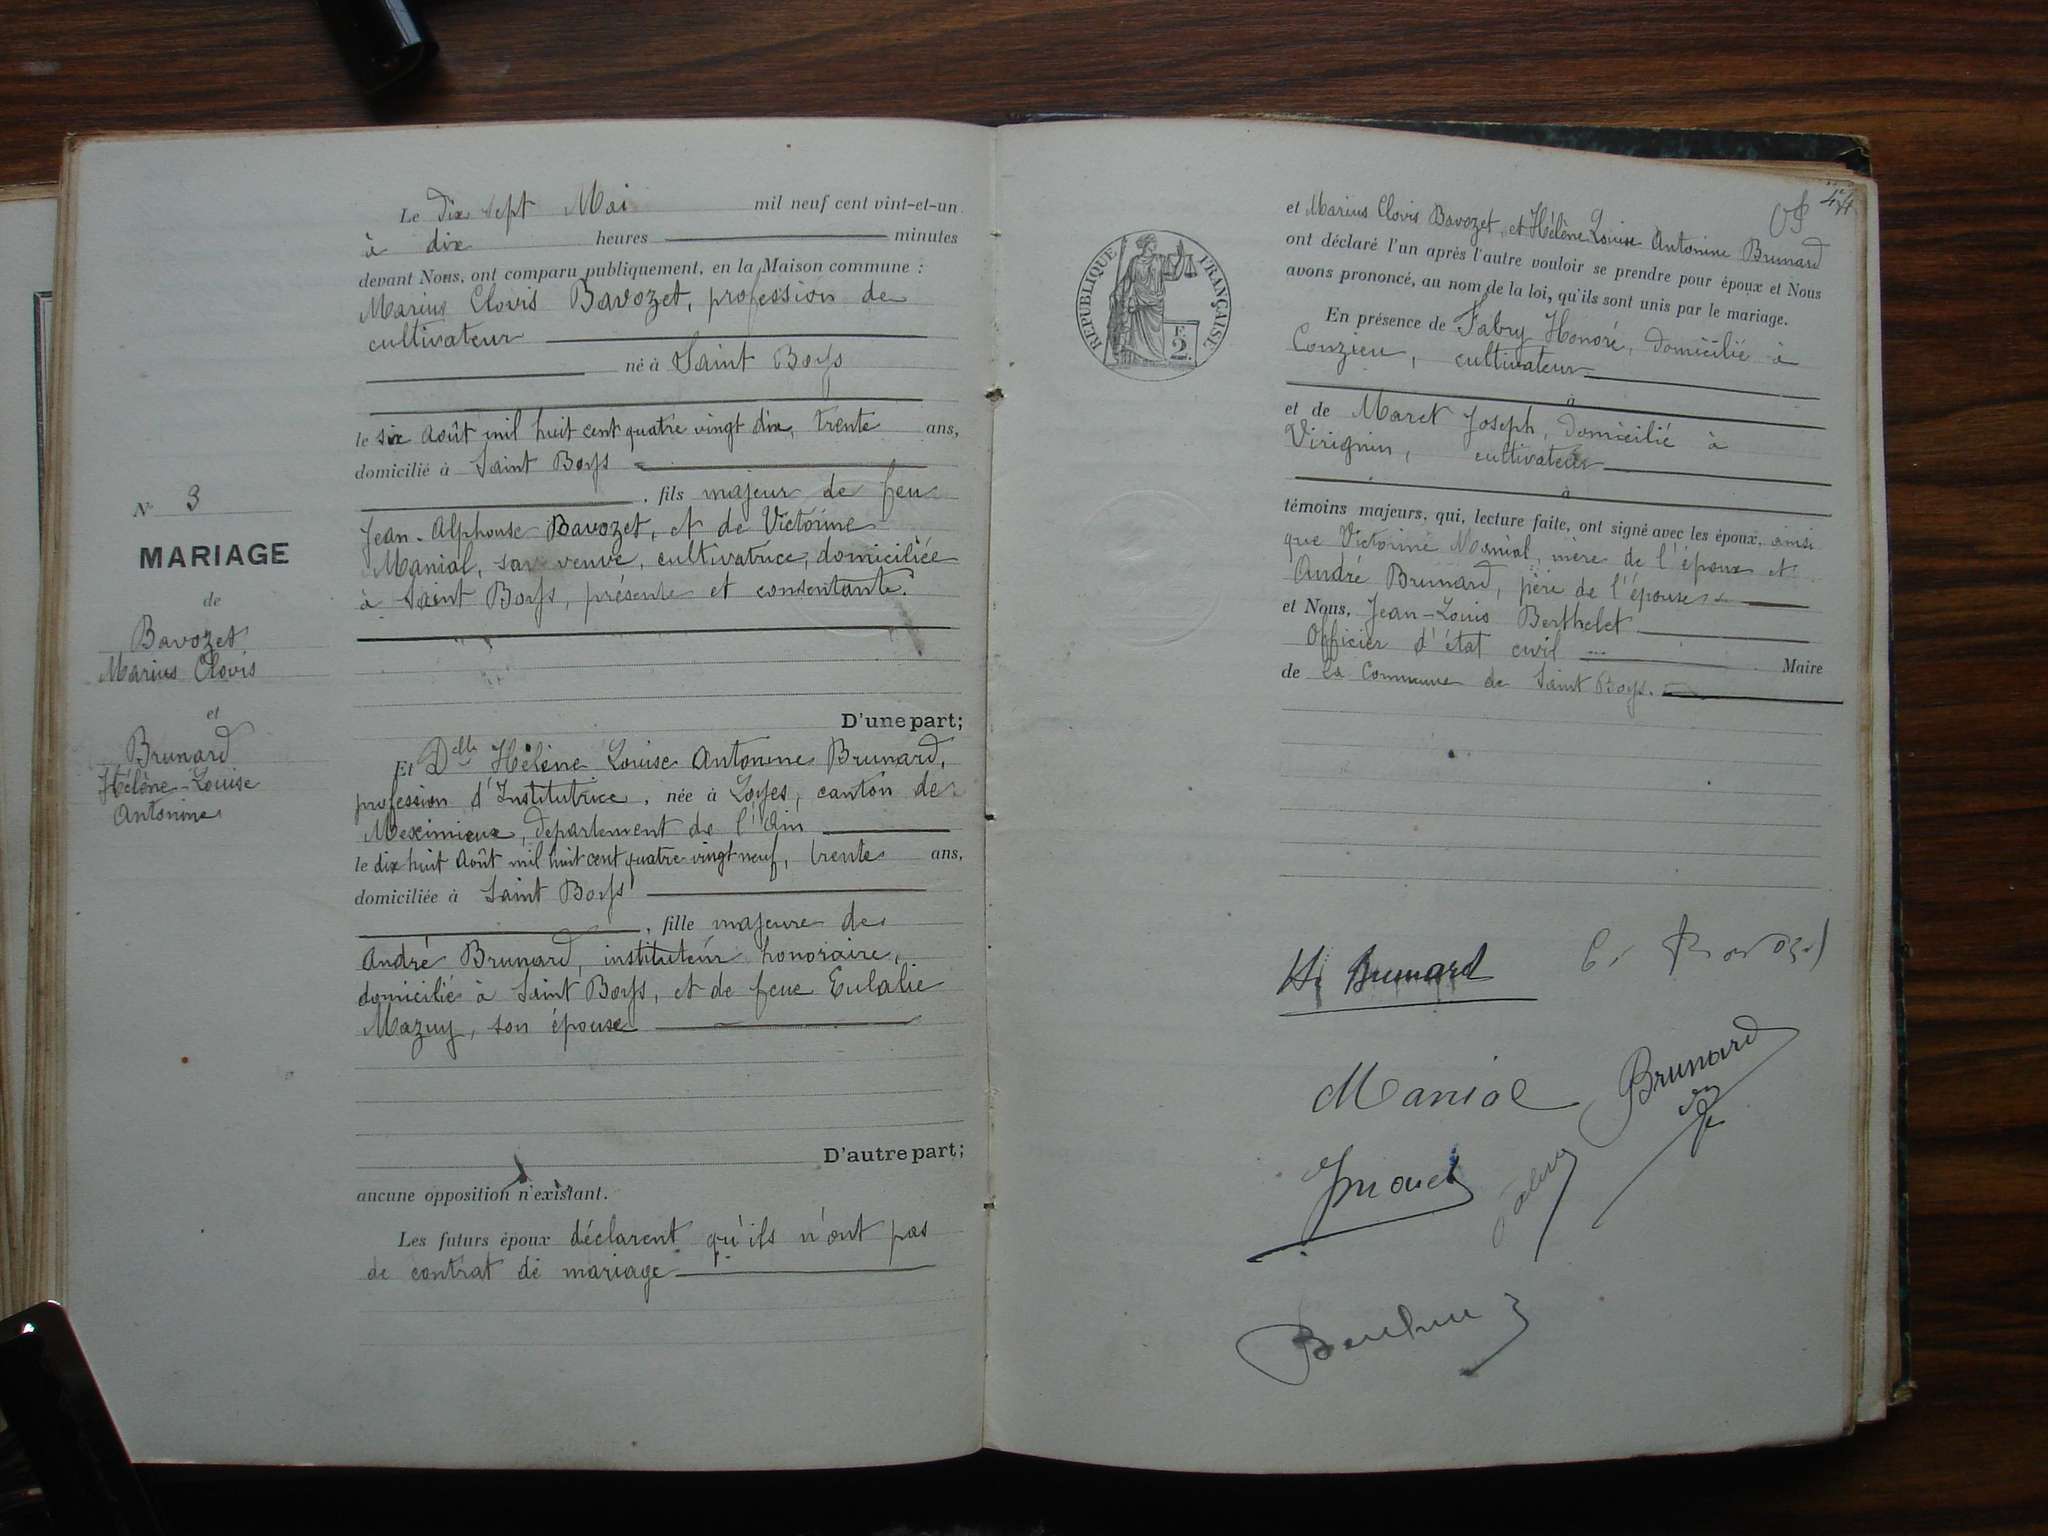 N° 3
MARIAGE
de
Bavozet
Marius Clovis
et
Brunard
Hélène-Louise
Antonine
Le dix sept Mai mil neuf cent vint-et-un
à dix heures minutes
devant Nous, ont comparu publiquement, en la Maison commune :
Marius Clovis Bavozet, profession de
cultivateur
né à Saint Boys
le six Août mil huit cent quatre vingt dix, trente ans,
domicilié à Saint Boys
, fils majeur de feu
Jean-Alphonse Bavozet, et de Victorine
Manial, sa veuve, cultivatrice, domiciliée
à Saint Boys, présente et consentante.
D'une part;
Et Delle Hélène Louise Antonine Brunard,
profession d'Institutrice, née à Loyes, canton de
Meximieux, département de l'Ain
le dix huit Août mil huit cent quatre-vingt neuf, trente ans,
domiciliée à Saint Boys
, fille majeure de
André Brunard, instituteur honoraire,
domicilié à Saint Boys, et de feue Eulalie
Mazuy, son épouse
D'autre part;
aucune opposition n'existant.
Les futurs époux déclarent qu'ils n'ont pas
de contrat de mariage
RÉPUBLIQUE FRANÇAISE
2
et Marius Clovis Bavozet, et Hélène Louise Antonine Brunard
ont déclaré l'un après l'autre vouloir se prendre pour époux et Nous
avons prononcé, au nom de la loi, qu'ils sont unis par le mariage.
En présence de Fabry Honoré, domicilié à
Conzieu, cultivateur
à
et de Maret Joseph, domicilié à
Virignin, cultivateur
à
témoins majeurs, qui, lecture faite, ont signé avec les époux, ainsi
que Victorine Manial, mère de l'époux et
André Brunard, père de l'épouse
et Nous, Jean-Louis Berthelet
Officier d'état civil Maire
de la Commune de Saint Boys.
H. Brunard
C. Bavozet
Manial
Brunard
Fabry